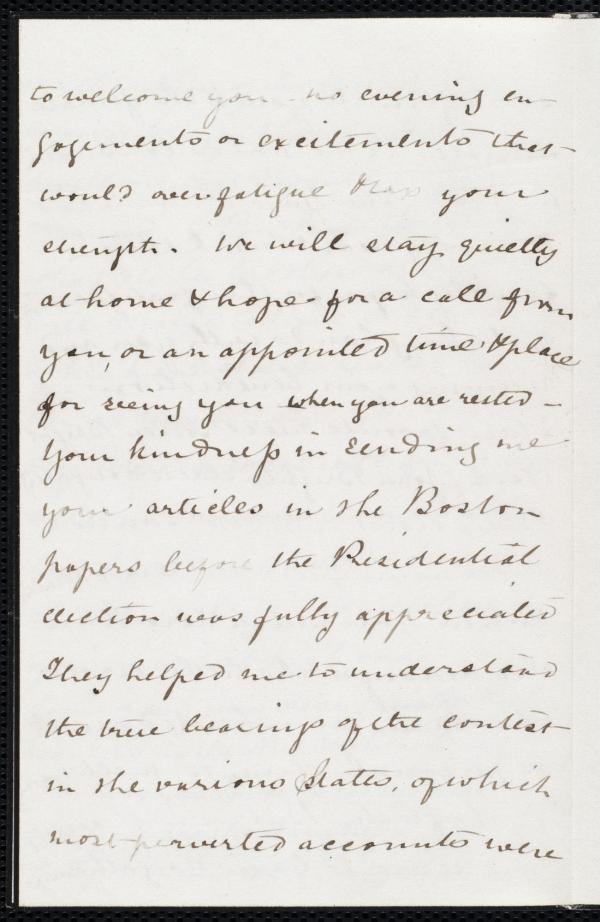 to welcome you - no evening en-
gagements or excitements that
would overfatigue & tax your
strength. We will stay quietly
at home & hope for a call from
you, or an appointed time & place
for seeing you when you are rested -
Your kindness in sending me
your articles in the Boston
papers before the Presidential
election was fully appreciated
They helped me to understand
the true bearings of the contest
in the various States, of which
most perverted accounts were